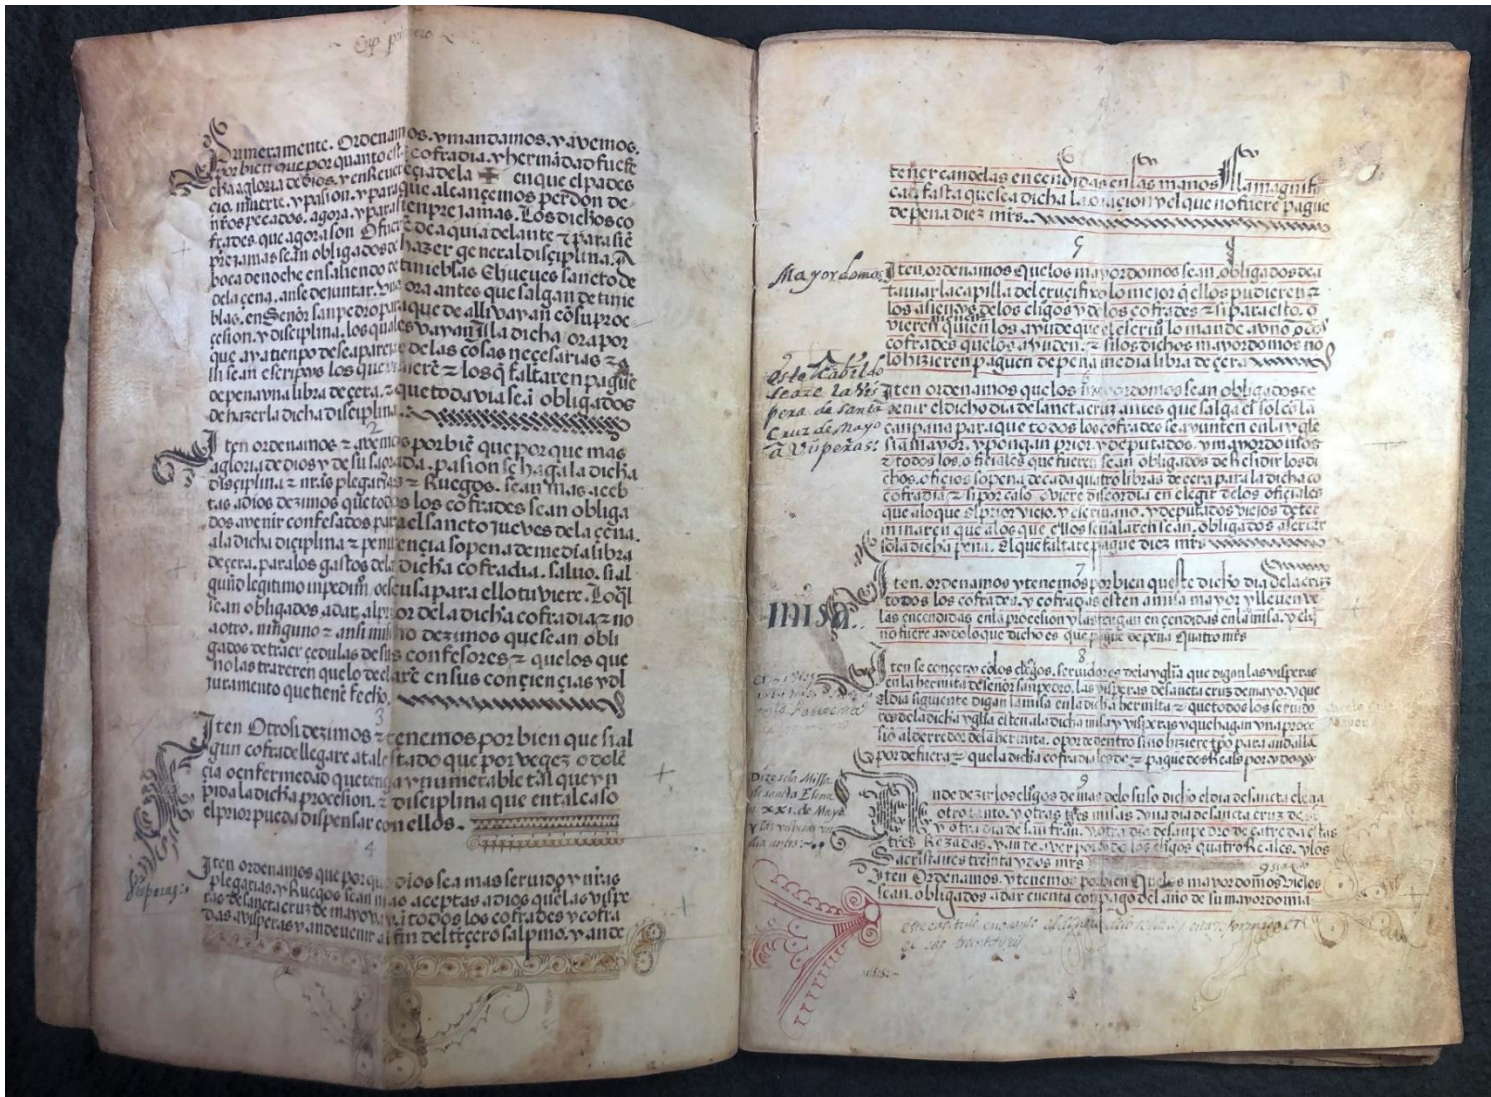 Cap primero
Primeramente. Ordenamos. y mandamos. y avemos.
por bien que por quanto esta cofradia. y hermādad fue fe
cha a gloria de dios. y en Reverēcia de la + en que el pades
cio. muerte. y pasion. y para que alcançemos perdon de
nr̄os pecados. agora. y para sienpre jamas. Los dichos co
frades que agora son O fuerē de aqui adelante & para siē
pre jamas seā obligados de hazer general disçiplina. A
boca de noche en saliendo de tinieblas El jueves sancto de
de la çena. anse de juntar. Una ora antes que salgan de tinie
blas. en Señor san pedro para que de alli vayan cō su proe
çesion. y disciplina. los quales vayan A la dicha ora por
que aya tienpo de se aparejar de las cosas neçesarias & a
lli seā escriptos los que vinierē & los q̄ faltaren pague
de pena vna libra de çera. & que toda via seā obligados
de hazer la dicha disciplina.
2
Iten ordenamos & avemos por biē que por que mas
a gloria de dios y de su sagrada. pasion se haga la dicha
disciplina & nr̄as plegarias & Ruegos. sean mas aceb
tas a dios dezimos que todos los cofrades sean obliga
dos a venir confesados para el sancto jueves de la çena.
a la dicha diçiplina & penitençia so pena de media libra
de çera. para los gastos de la dicha cofradia. salvo. si al
guno legitimo inpedimº o escusa para ello tuviere. Lo q̄l
sean obligados. a dar. al prior de la dicha cofradia & no
a otro. ninguno & ansi mismo dezimos que sean obli
gados de traer cedulas de sus confesores & que los que
no las traxeren que lo declarē en sus conçiençias y dl
juramento que tienē fecho.
3
Iten Otrosi dezimos & tenemos por bien que si al
gun cofrade llegare a tal estado que por vegez o dolē
çia o enfermedad que tenga y numerable tal que yn
pida la dicha procesion. & disciplina que en tal caso
el prior pueda dispensar con ellos.
4
Iten ordenamos que por que dios sea mas servido y nr̄as
plegarias. y Ruegos sean mas aceptas a dios que las vispe
ras de sancta cruz de mayo vayā todos los cofrades y cofra
das a visperas y an de venir al fin del terçero salpmo. y an de
Visperas:
tener candelas encendidas en las manos A la magnifi
cat fasta que sea dicha la oracion y el que no fuere pague
de pena diez mrs.
5
Mayordomos
Iten. ordenamos Que los mayordomos sean. obligados de a
taviar la capilla del cruçifixo lo mejor q̄ ellos pudieren &
los asientos de los cligos y de los cofrades & si para esto. o
vieren quien los ayude que el escriū lo mande a vno o dos
cofrades que los ayuden. & si los dichos mayordomos no
lo hizieren paguen de pena media libra de çera
este Cabildo
se aze la Vis
pera de Santa
Cruz de Mayo
a Visperas:
Iten ordenamos que los mayordomos sean obligados de
venir el dicho dia de sancta cruz antes que salga el sol es la
campana para que todos los cofrades se ayunten en la ygle
sia mayor. y pongan prior. y deputados. y mayordomos
& todos los. oficiales que fueren sean obligados de Residir los di
chos. oficios so pena de cada quatro libras de cera para la dicha co
cofradia & si por caso oviere discordia en elegir de los oficiales
que a lo que el prior viejo. y escrivano. y deputados viejos deter
minaren que a los que ellos señalaren sean. obligados a serlo
so la dicha pena. El que faltare pague diez mrs
7
misa.
Iten. ordenamos y tenemos por bien que este dicho dia de la cruz
todos los cofrades. y cofradas esten a misa mayor y lleven ve
las encendidas en la procesion y las tengan en çendidas en la misa. y el q̄
no fuere a todo lo que dicho es que pague de pena quatro mrs
8
Iten se concerto cō los cligos. servidores de la yglia que digan las visperas
en la hermita de señor san pedro. las visperas de sancta cruz de mayo. y que
el dia siguiente digan la misa en la dicha hermita & que todos los servido
res de la dicha yglia esten a la dicha misa y visperas y que hagan vna proce
siō al derredor de la hermita. o por de dentro si no hiziere tpō para andalla
por de fuera & que la dicha cofradia les de & pague dos Reales por
9
Dizese la Missa
de sancta Elena
a XXI. de Mayo
y las visperas un
dia antes:
An de dezir los cligos de mas de lo suso dicho el dia de sancta elena
otro tanto. y otras tres misas. vna dia de sancta cruz de
y otra dia de san fran. y otra dia de san pedro de catreda estas
tres Rezadas. y an de aver por todo los cligos quatro Reales. y los
Sacristanes treinta y dos mrs
Iten Ordenamos. y tenemos por bien Que los mayordomos viejos
sean. obligados a dar cuenta con pago del año de su mayordomia